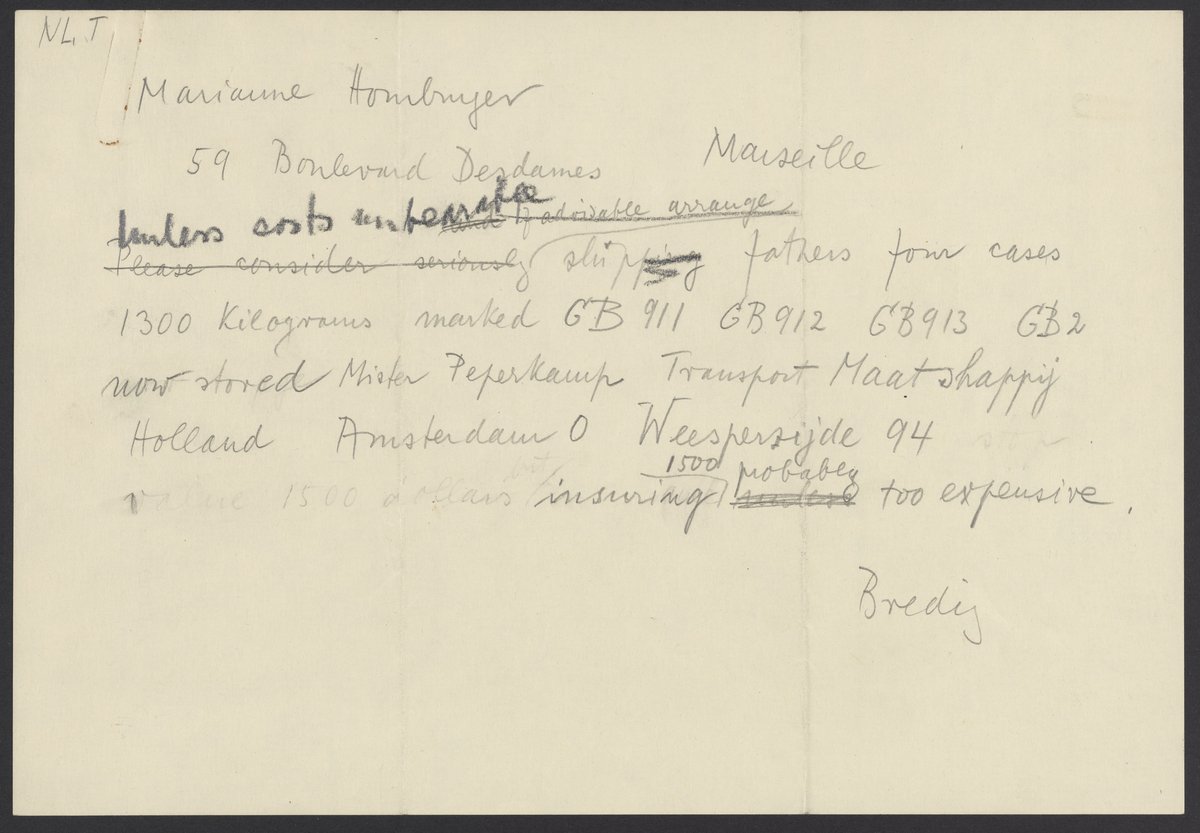 NL.T
Marianne Homburger
59 Boulevard Desdames Marseille
Unless costs unbearable
and if advisable arrange
Please consider seriously shipping fathers four cases
1300 Kilograms marked GB 911 GB 912 GB 913 GB 2
now stored Mister Peperkamp Transport Maatshappij
Holland Amsterdam O Weesperzijde 94
but 1500 probably
value 1500 dollars insuring unless too expensive.
Bredig